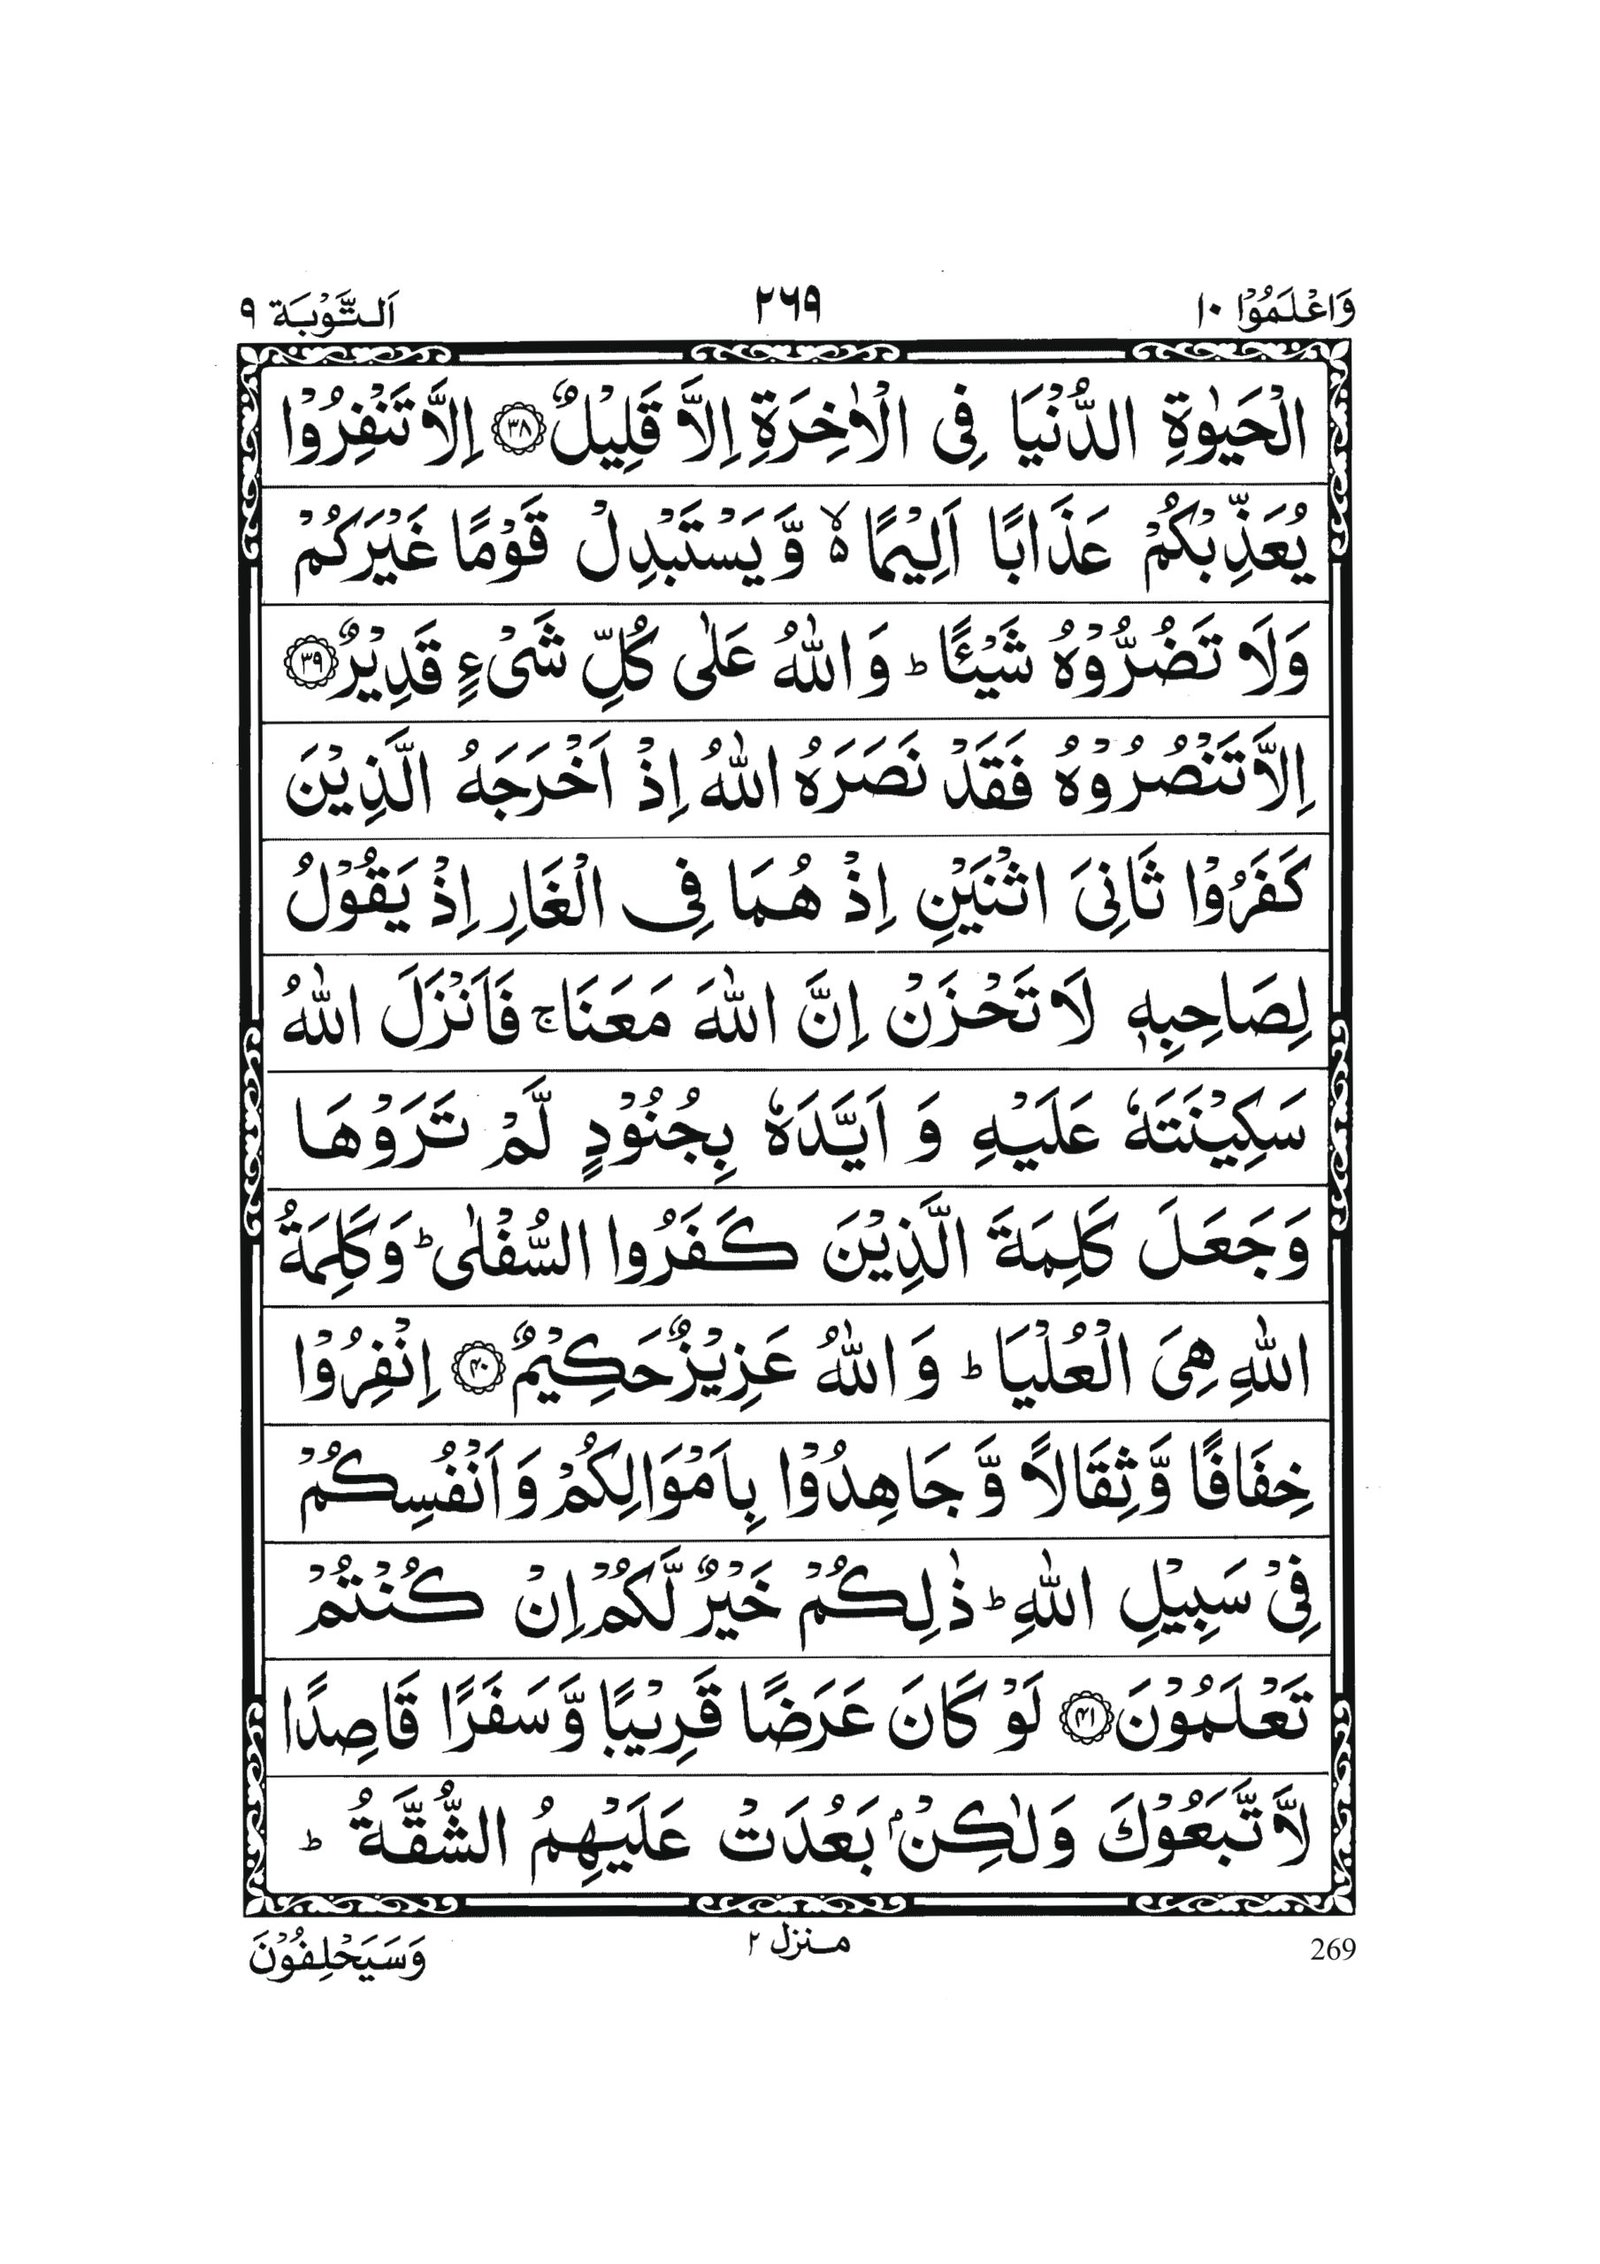 وَاعْلَمُوْٓا ١٠ ٢٦٩ اَلتَّوْبَة ٩
الْحَيٰوةِ الدُّنْيَا فِى الْاٰخِرَةِ اِلَّا قَلِيْلٌ ﴿٣٨﴾ اِلَّا تَنْفِرُوْا
يُعَذِّبْكُمْ عَذَابًا اَلِيْمًا ۙ٥ وَّ يَسْتَبْدِلْ قَوْمًا غَيْرَكُمْ
وَلَا تَضُرُّوْهُ شَيْئًا ؕ وَ اللّٰهُ عَلٰى كُلِّ شَىْءٍ قَدِيْرٌ ﴿٣٩﴾
اِلَّا تَنْصُرُوْهُ فَقَدْ نَصَرَهُ اللّٰهُ اِذْ اَخْرَجَهُ الَّذِيْنَ
كَفَرُوْا ثَانِىَ اثْنَيْنِ اِذْ هُمَا فِى الْغَارِ اِذْ يَقُوْلُ
لِصَاحِبِهٖ لَا تَحْزَنْ اِنَّ اللّٰهَ مَعَنَا ۚ فَاَنْزَلَ اللّٰهُ
سَكِيْنَتَهٗ عَلَيْهِ وَ اَيَّدَهٗ بِجُنُوْدٍ لَّمْ تَرَوْهَا
وَجَعَلَ كَلِمَةَ الَّذِيْنَ كَفَرُوا السُّفْلٰى ؕ وَكَلِمَةُ
اللّٰهِ هِىَ الْعُلْيَا ؕ وَ اللّٰهُ عَزِيْزٌ حَكِيْمٌ ﴿٤٠﴾ اِنْفِرُوْا
خِفَافًا وَّ ثِقَالًا وَّ جَاهِدُوْا بِاَمْوَالِكُمْ وَ اَنْفُسِكُمْ
فِىْ سَبِيْلِ اللّٰهِ ؕ ذٰلِكُمْ خَيْرٌ لَّكُمْ اِنْ كُنْتُمْ
تَعْلَمُوْنَ ﴿٤١﴾ لَوْ كَانَ عَرَضًا قَرِيْبًا وَّ سَفَرًا قَاصِدًا
لَّا تَّبَعُوْكَ وَلٰكِنْۢ بَعُدَتْ عَلَيْهِمُ الشُّقَّةُ ؕ
269 مـنزل ٢ وَسَيَحْلِفُوْنَ